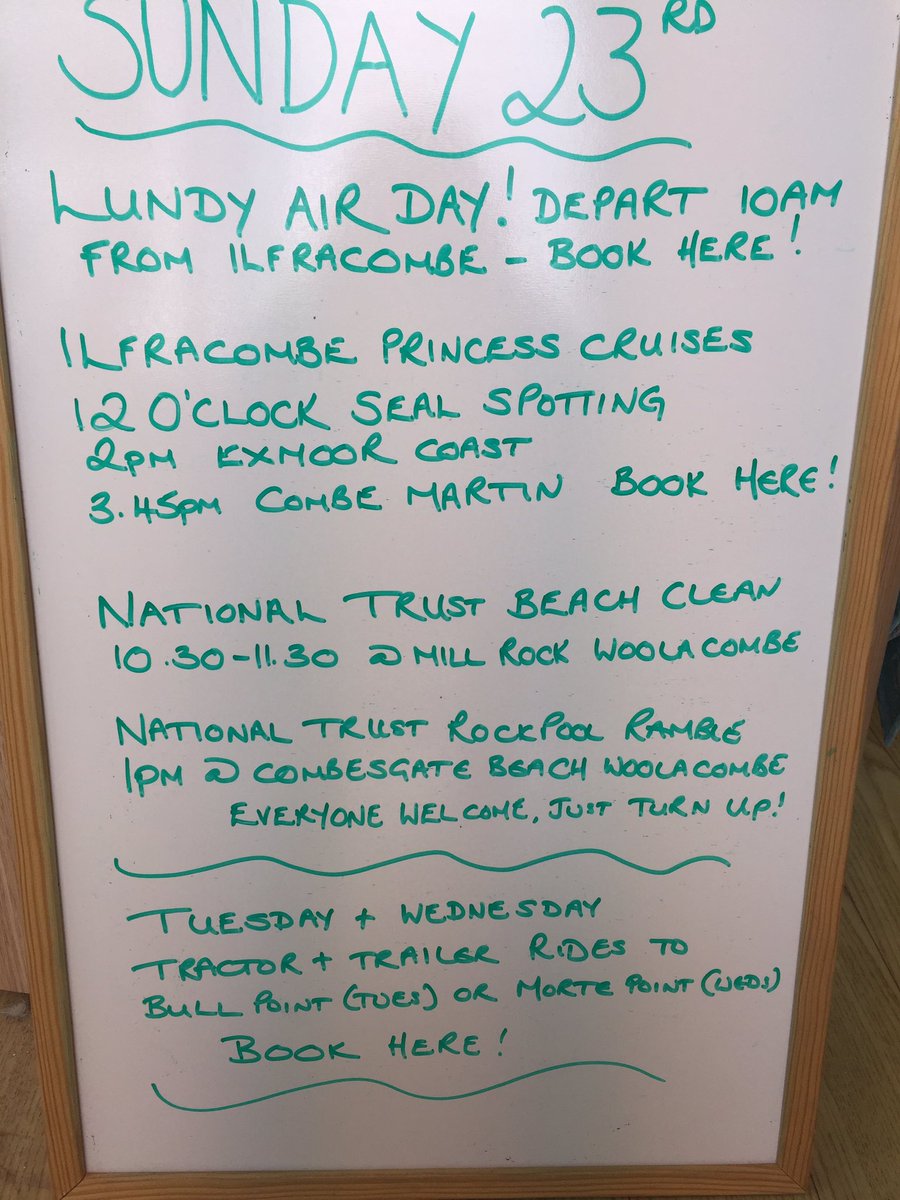 SUNDAY 23RD
LUNDY AIR DAY! DEPART 10AM
FROM ILFRACOMBE - BOOK HERE!
ILFRACOMBE PRINCESS CRUISES
12 O'CLOCK SEAL SPOTTING
2PM EXMOOR COAST
3.45PM COMBE MARTIN BOOK HERE!
NATIONAL TRUST BEACH CLEAN
10.30-11.30 @ MILL ROCK WOOLACOMBE
NATIONAL TRUST ROCKPOOL RAMBLE
1PM @ COMBESGATE BEACH WOOLACOMBE
EVERYONE WELCOME, JUST TURN UP!
TUESDAY + WEDNESDAY
TRACTOR + TRAILER RIDES TO
BULL POINT (TUES) OR MORTE POINT (WEDS)
BOOK HERE!